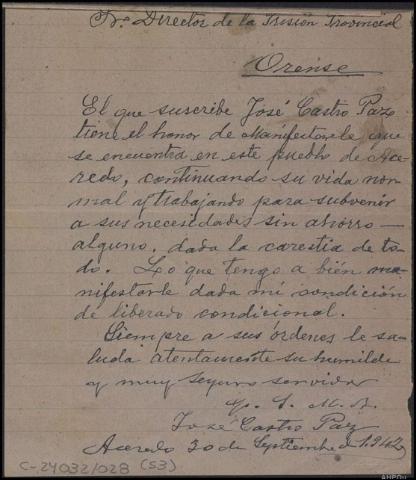 Sr. Director de la Prisión Provincial
Orense
El que suscribe José Castro Pazo
tiene el honor de Manifestarle que
se encuentra en este pueblo de Ace-
redo, continuando su vida nor-
mal y trabajando para subvenir
a sus necesidades sin ahorro —
alguno, dada la carestia de to-
do. Lo que tengo a bién ma-
nifestarle dada mi condición
de liberado condicional.
Siempre a sus órdenes le sa-
luda atentamente su humilde
y muy seguro servidor
q. s. m. b.
José Castro Paz
Aceredo 30 de Septiembre de 1.942
C-24032/028 (53)